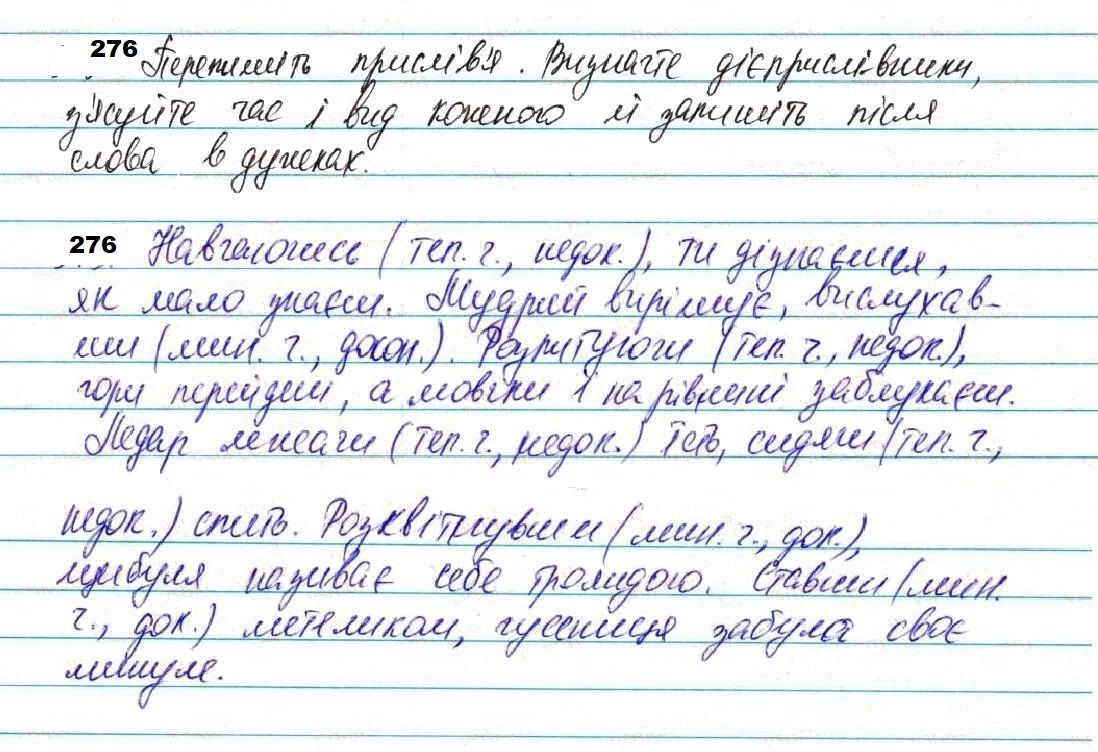 276 Перепишіть прислів'я. Визначте дієприслівники,
з'ясуйте час і вид кожного й запишіть після
слова в дужках.
276 Навчаючись (теп. ч., недок.), ти дізнаєшся,
як мало знаєш. Мудрий вирішує, вислухав-
ши (мин. ч., докон.). Розпитуючи (теп. ч., недок.),
гори перейдеш, а мовчки і на рівнині заблукаєш.
Ледар лежачи (теп. ч., недок.) їсть, сидячи (теп. ч.,
недок.) спить. Розквітнувши (мин. ч., док.),
цибуля називає себе трояндою. Ставши (мин.
ч., док.) метеликом, гусениця забула своє
минуле.